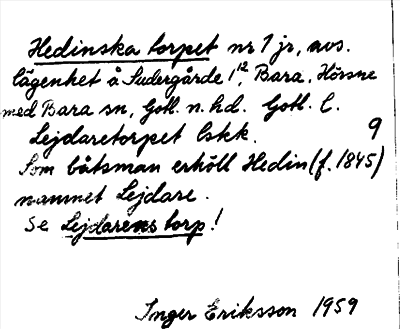 Hedinska torpet nr 1 jr, avs.
lägenhet å Sudergårde 1¹², Bara, Hörsne
med Bara sn, Gotl. n. hd. Gotl. l.
Lejdaretorpet Cskk. 9
Som båtsman erhöll Hedin (f. 1845)
namnet Lejdare.
Se Lejdarens torp!
Inger Eriksson 1959